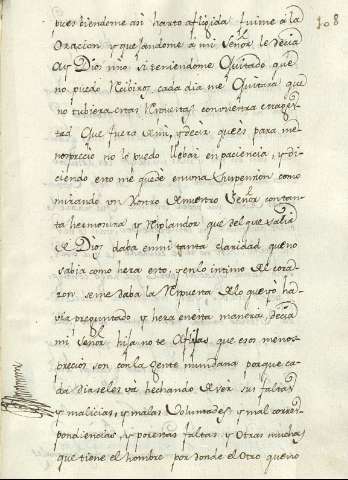 108
pues biendome asi harto afligida fuime a la
Oracion y quejandome a mi Señor le decia
Ay Dios mio si teniendome Quitado que
no puedo Recibiros cada dia me Quitara que
no tubiera estas Respuestas con vuestra magest
tad Que fuera de mi, y decir que es para me
nosprecio no lo puedo llebar en paciencia, y di
ciendo esto me quedè en una suspension como
mirando un Rostro de nuestro Señor con tan
ta hermosura y Resplandor que del que salia
de Dios daba en mi tanta claridad que no
sabia como hera esto, y en lo intimo del cora
zon se me daba la Respuesta de lo que yo ha
via preguntado y hera en esta manera, decia
mi Señor hija no te aflijas, que esos menos
precios son con la gente mundana porque ca
da dia se les và hechando de ver sus faltas
y malicias, y malas Voluntades y mal corres
pondiencias, y por estas faltas y Otras muchas
que tiene el hombre por donde el Otro que no